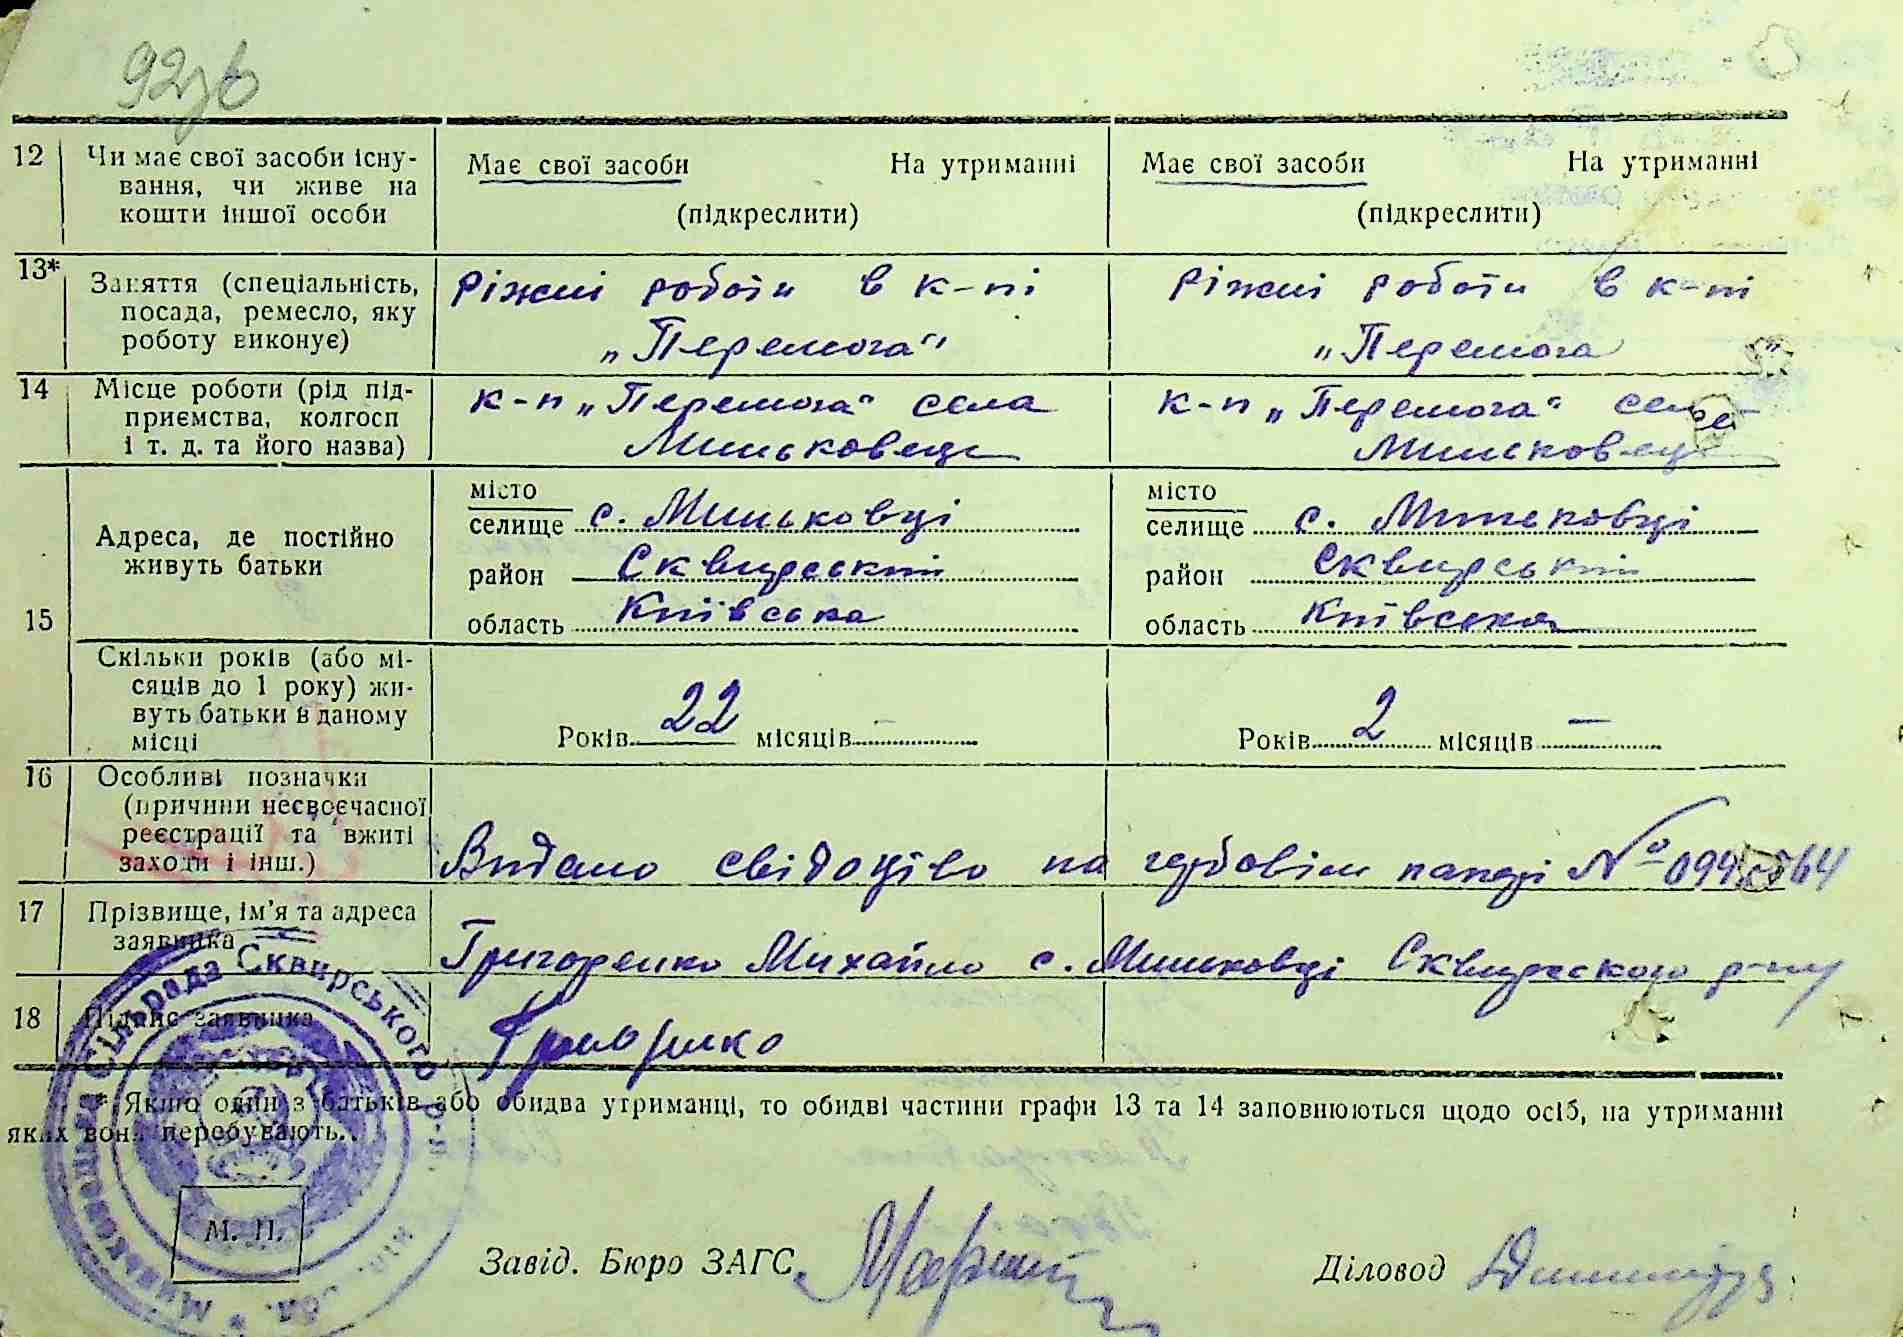 92зв
12 Чи має свої засоби існу- Має свої засоби На утриманні Має свої засоби На утриманні
вання, чи живе на
кошти іншої особи (підкреслити) (підкреслити)
13* Заняття (спеціальність, ріжні роботи в к-пі ріжні роботи в к-пі
посада, ремесло, яку
роботу виконує) „Перемога" „Перемога"
14 Місце роботи (рід під- к-п „Перемога" села к-п „Перемога" села
приємства, колгосп
і т. д. та його назва) Миньковець Миньковець
місто місто
Адреса, де постійно селище с. Миньковці селище с. Миньковці
живуть батьки район Сквирський район Сквирський
15 область Київська область Київська
Скільки років (або мі-
сяців до 1 року) жи-
вуть батьки в даному
місці Років 22 місяців — Років 2 місяців —
16 Особливі позначки
(причини несвоєчасної
реєстрації та вжиті
заходи і інш.) Видано свідоцтво на гербовім папері №
17 Прізвище, ім'я та адреса
заявника Григоренко Михайло с. Миньковці Сквирського р-ну
18 Підпис заявника
* Якщо один з батьків або обидва утриманці, то обидві частини графи 13 та 14 заповнюються щодо осіб, на утриманні
яких вони перебувають.
Миньковецька Сільрада Сквирського р-н.
М. П.
Завід. Бюро ЗАГС
Діловод